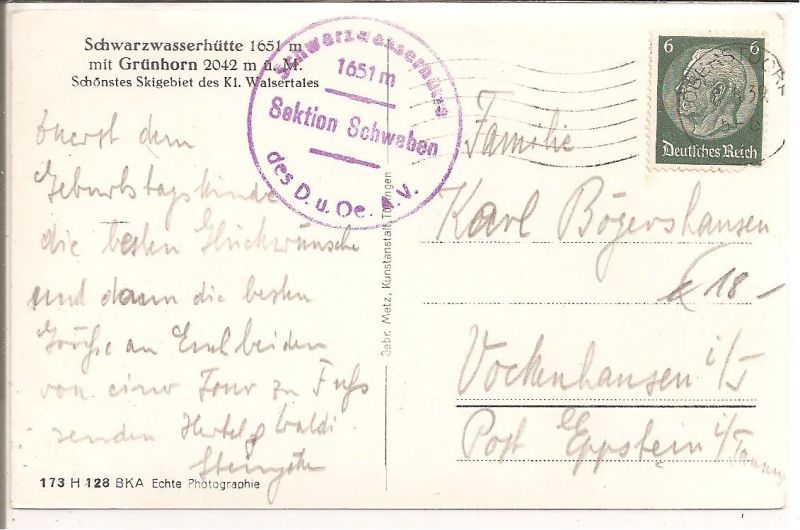 Schwarzwasserhütte 1651 m
mit Grünhorn 2042 m ü. M.
Schönstes Skigebiet des Kl. Walsertales
Schwarzwasserhütte
1651 m
Sektion Schwaben
des D. u. Oe. A. V.
6 6
Deutsches Reich
Zuerst dem
Geburtstagskinde
die besten Glückwünsche
und dann die besten
Grüße an Euch beiden
von einer Tour zu Fuß
senden Hertel &
Gebr. Metz, Kunstanstalt, Tübingen
Familie
Karl Bögershausen
€ 18 -
Vockenhausen i/T
Post Eppstein i/Taunus
173 H 128 BKA Echte Photographie